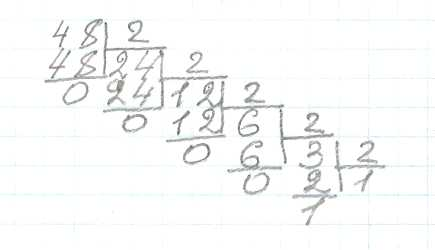 48 2
48 24 2
0 24 12 2
0 12 6 2
0 6 3 2
0 2 1
1